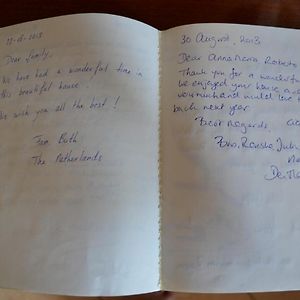 Dear family,
We have had a wonderful time in
this beautiful house
We wish you all the best!
Fam Both
The Netherlands
30 August, 2013
Dear Anna Maria Roberto
Thank you for a wonderful
we enjoyed your house and
would love
back next year
Best regards,